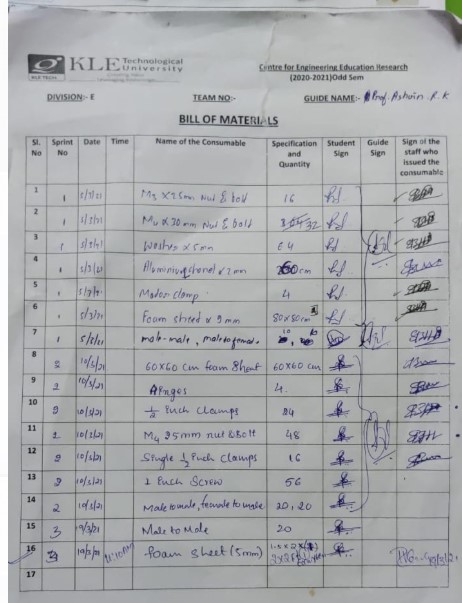 KLE Technological University
Creating Value
Leveraging Knowledge
KLE TECH
Centre for Engineering Education Research
(2020-2021)Odd Sem
DIVISION:- E TEAM NO:- GUIDE NAME:- Prof. Ashwin. R. K
BILL OF MATERIALS
Sl. No Sprint No Date Time Name of the Consumable Specification and Quantity Student Sign Guide Sign Sign of the staff who issued the consumable
1 1 5/3/21 M4 x 25mm Nut & bolt 16
2 1 5/3/21 M4 x 30 mm Nut & bolt 32
3 1 5/3/21 Washer x 5mm 64
4 1 5/3/21 x 2mm 60 cm
5 1 5/3/21 Motor clamp 4
6 1 5/3/21 Foam x 5mm 80x80cm
7 1 5/3/21 male-male, male to female.
8 2 10/3/21 60x60 cm foam Sheet 60x60 cm
9 2 10/3/21 Hinges 4.
10 2 10/3/21 1/2 Inch Clamps 24
11 2 10/3/21 M4 25mm nut & Bolt 48
12 2 10/3/21 Single 1/2 Inch Clamps 16
13 2 10/3/21 1 Inch Screw 56
14 2 10/3/21 Male to male, female to male 20, 20
15 3 19/3/21 Male to Male 20
16 3 foam sheet (5mm)
17